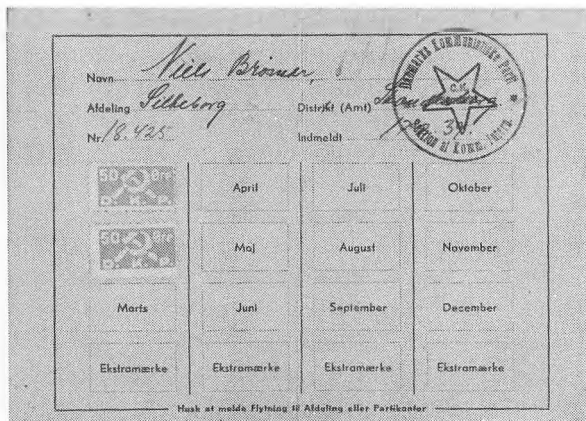 Navn Niels Brömer,
Afdeling Silkeborg Distrikt (Amt)
Nr. 18.425 Indmeldt 39.
Danmarks Kommunistiske Parti
C.K.
Sektion af Komm. Intern.
50 Øre April Juli Oktober
D.K.P.
50 Øre Maj August November
D.K.P.
Marts Juni September December
Ekstramærke Ekstramærke Ekstramærke Ekstramærke
Husk at melde Flytning til Afdeling eller Partikontor